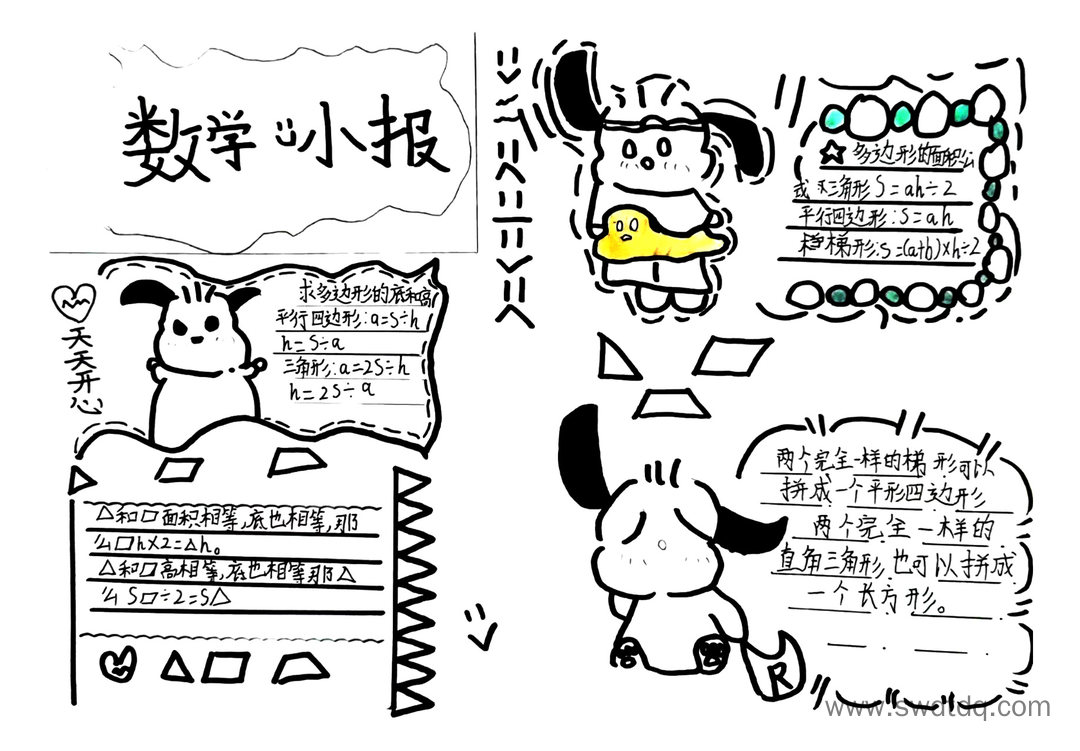 数学小报
☆多边形的面积公
或 三角形 S=ah÷2
平行四边形:S=ah
梯形:S=(a+b)×h÷2
天天开心
求多边形的底和高
平行四边形:a=S÷h
h=S÷a
三角形:a=2S÷h
h=2S÷a
△和▱面积相等,底也相等,那
么▱h×2=△h。
△和▱高相等,底也相等那△
么S▱÷2=S△
两个完全一样的梯形可以
拼成一个平形四边形
两个完全一样的
直角三角形,也可以拼成
一个长方形。
R
www.swdtdq.com